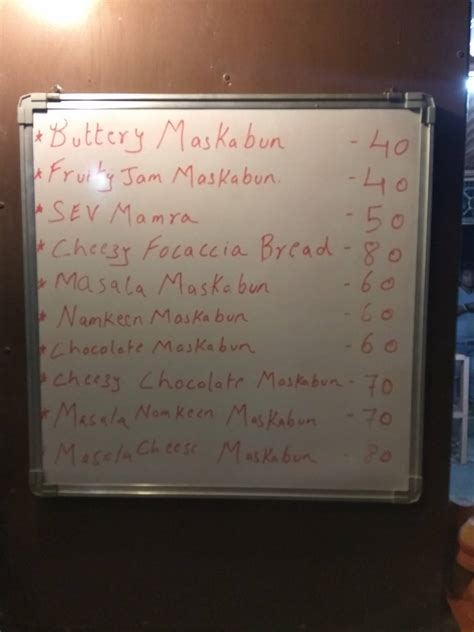 * Buttery Maskabun - 40
* Fruity Jam Maskabun. - 40
* SEV Mamra - 50
* Cheezy Focaccia Bread - 80
* Masala Maskabun - 60
* Namkeen Maskabun - 60
* Chocolate Maskabun - 60
* Cheezy Chocolate Maskabun - 70
* Masala Namkeen Maskabun - 70
* Masala Cheese Maskabun - 80